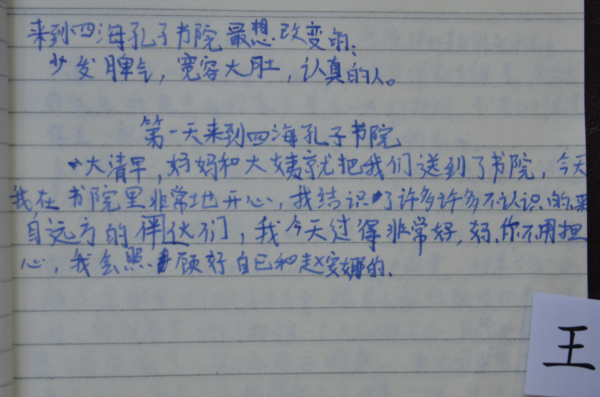 来到四海孔子书院最想改变的:
少发脾气，宽容大肚，认真的人。
第一天来到四海孔子书院
一大清早，妈妈和大姨就把我们送到了书院，今天
我在书院里非常地开心，我结识了许多许多不认识的来
自远方的伴伙们，我今天过得非常好，妈，你不用担
心，我会照顾好自己和赵安娜的.
王